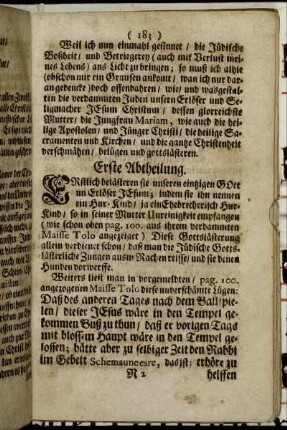 ( 183 )
Weil ich nun einmahl gesinnet / die Jüdische
Boßheit / und Betriegerey (auch mit Verlust mei-
nes Lebens) ans Licht zu bringen; so muß ich allhie
(obschon mir ein Grausen ankomt / wan ich nur dar-
an gedencke) doch offenbahren / wie / und wasgestal-
ten die verdammten Juden unsern Erlöser und Se-
ligmacher JEsum Christum / dessen glorreichste
Mutter / die Jungfrau Mariam, wie auch die heili-
ge Apostolen / und Jünger Christi / die heilige Sa-
cramenten und Kirchen / und die gantze Christenheit
verschmähen / belügen und gottslästeren.
Erste Abtheilung.
ERstlich belästeren sie unseren eintzigen GOtt
und Erlöser JEsum; indem sie ihn nennen
ein Hur-Kind / ja ein Ehebrecherisches Hur-
Kind / so in seiner Mutter Unreinigkeit empfangen
(wie schon oben pag. 100. aus ihrem verdammten
Maisse Tolo angezeiget) Diese Gottslästerung
allein verdienet schon / daß man die Jüdische Gotts-
lästerliche Zungen aus'm Rachen reisse / und sie denen
Hunden vorwerffe.
Weiters liest man in vorgemeldten / pag. 100.
angezogenen Maisse Tolo diese unverschämte Lügen:
Daß des anderen Tages nach dem Ballspie-
len / dieser JEsus wäre in den Tempel ge-
kommen Buß zu thun / daß er vorigen Tags
mit blossem Haupt wäre in den Tempel ge-
loffen; hätte aber zu selbiger Zeit den Rabbi
im Gebett Schemauneesre, das ist: erhöre zu
N 2 helffen